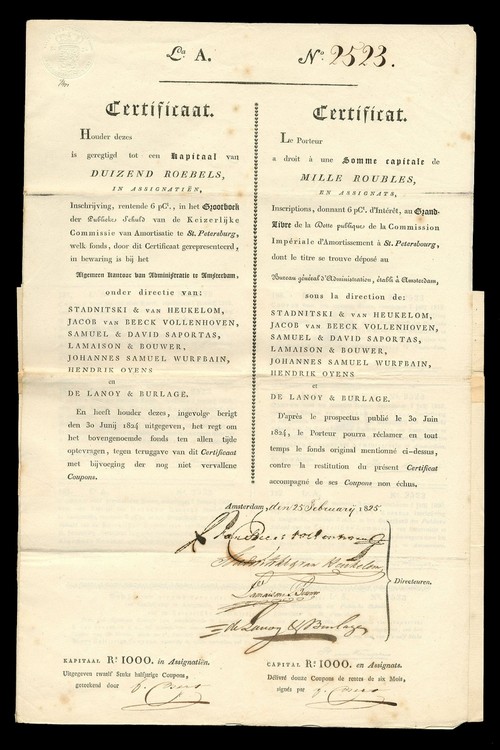 La. A.
No. 2523.
Certificaat.
Houder dezes
is geregtigd tot een Kapitaal van
DUIZEND ROEBELS,
IN ASSIGNATIËN,
Inschrijving, rentende 6 pCt., in het Grootboek
der Publieke Schuld van de Keizerlijke
Commissie van Amortisatie te St. Petersburg,
welk fonds, door dit Certificaat gerepresenteerd,
in bewaring is bij het
Algemeen Kantoor van Administratie te Amsterdam,
onder directie van:
STADNITSKI & VAN HEUKELOM,
JACOB VAN BEECK VOLLENHOVEN,
SAMUEL & DAVID SAPORTAS,
LAMAISON & BOUWER,
JOHANNES SAMUEL WURFBAIN,
HENDRIK OYENS
en
DE LANOY & BURLAGE.
En heeft houder dezes, ingevolge berigt
den 30 Junij 1824 uitgegeven, het regt om
het bovengenoemde fonds ten allen tijde
optevragen, tegen teruggave van dit Certificaat
met bijvoeging der nog niet vervallene
Coupons.
Certificat.
Le Porteur
a droit à une Somme capitale de
MILLE ROUBLES,
EN ASSIGNATS,
Inscriptions, donnant 6 pCt. d'Intérêt, au Grand-
Livre de la Dette publiques de la Commission
Impériale d'Amortissement à St. Petersbourg,
dont le titre se trouve déposé au
Bureau général d'Administration, établi à Amsterdam,
sous la direction de:
STADNITSKI & VAN HEUKELOM,
JACOB VAN BEECK VOLLENHOVEN,
SAMUEL & DAVID SAPORTAS,
LAMAISON & BOUWER,
JOHANNES SAMUEL WURFBAIN,
HENDRIK OYENS
et
DE LANOY & BURLAGE.
D'après le prospectus publié le 30 Juin
1824, le Porteur pourra réclamer en tout
temps le fonds original mentionné ci-dessus,
contre la restitution du présent Certificat
accompagné de ses Coupons non échus.
Amsterdam, den 25 Februarij 1825.
van Beeck Vollenhoven
Stadnitski & van Heukelom
Lamaison & Bouwer
de Lanoy & Burlage
Directeuren.
KAPITAAL Rs. 1000. in Assignatiën.
Uitgegeven twaalf Stuks halfjarige Coupons,
geteekend door
CAPITAL Rs. 1000. en Assignats.
Délivré douze Coupons de rentes de six Mois,
signés par